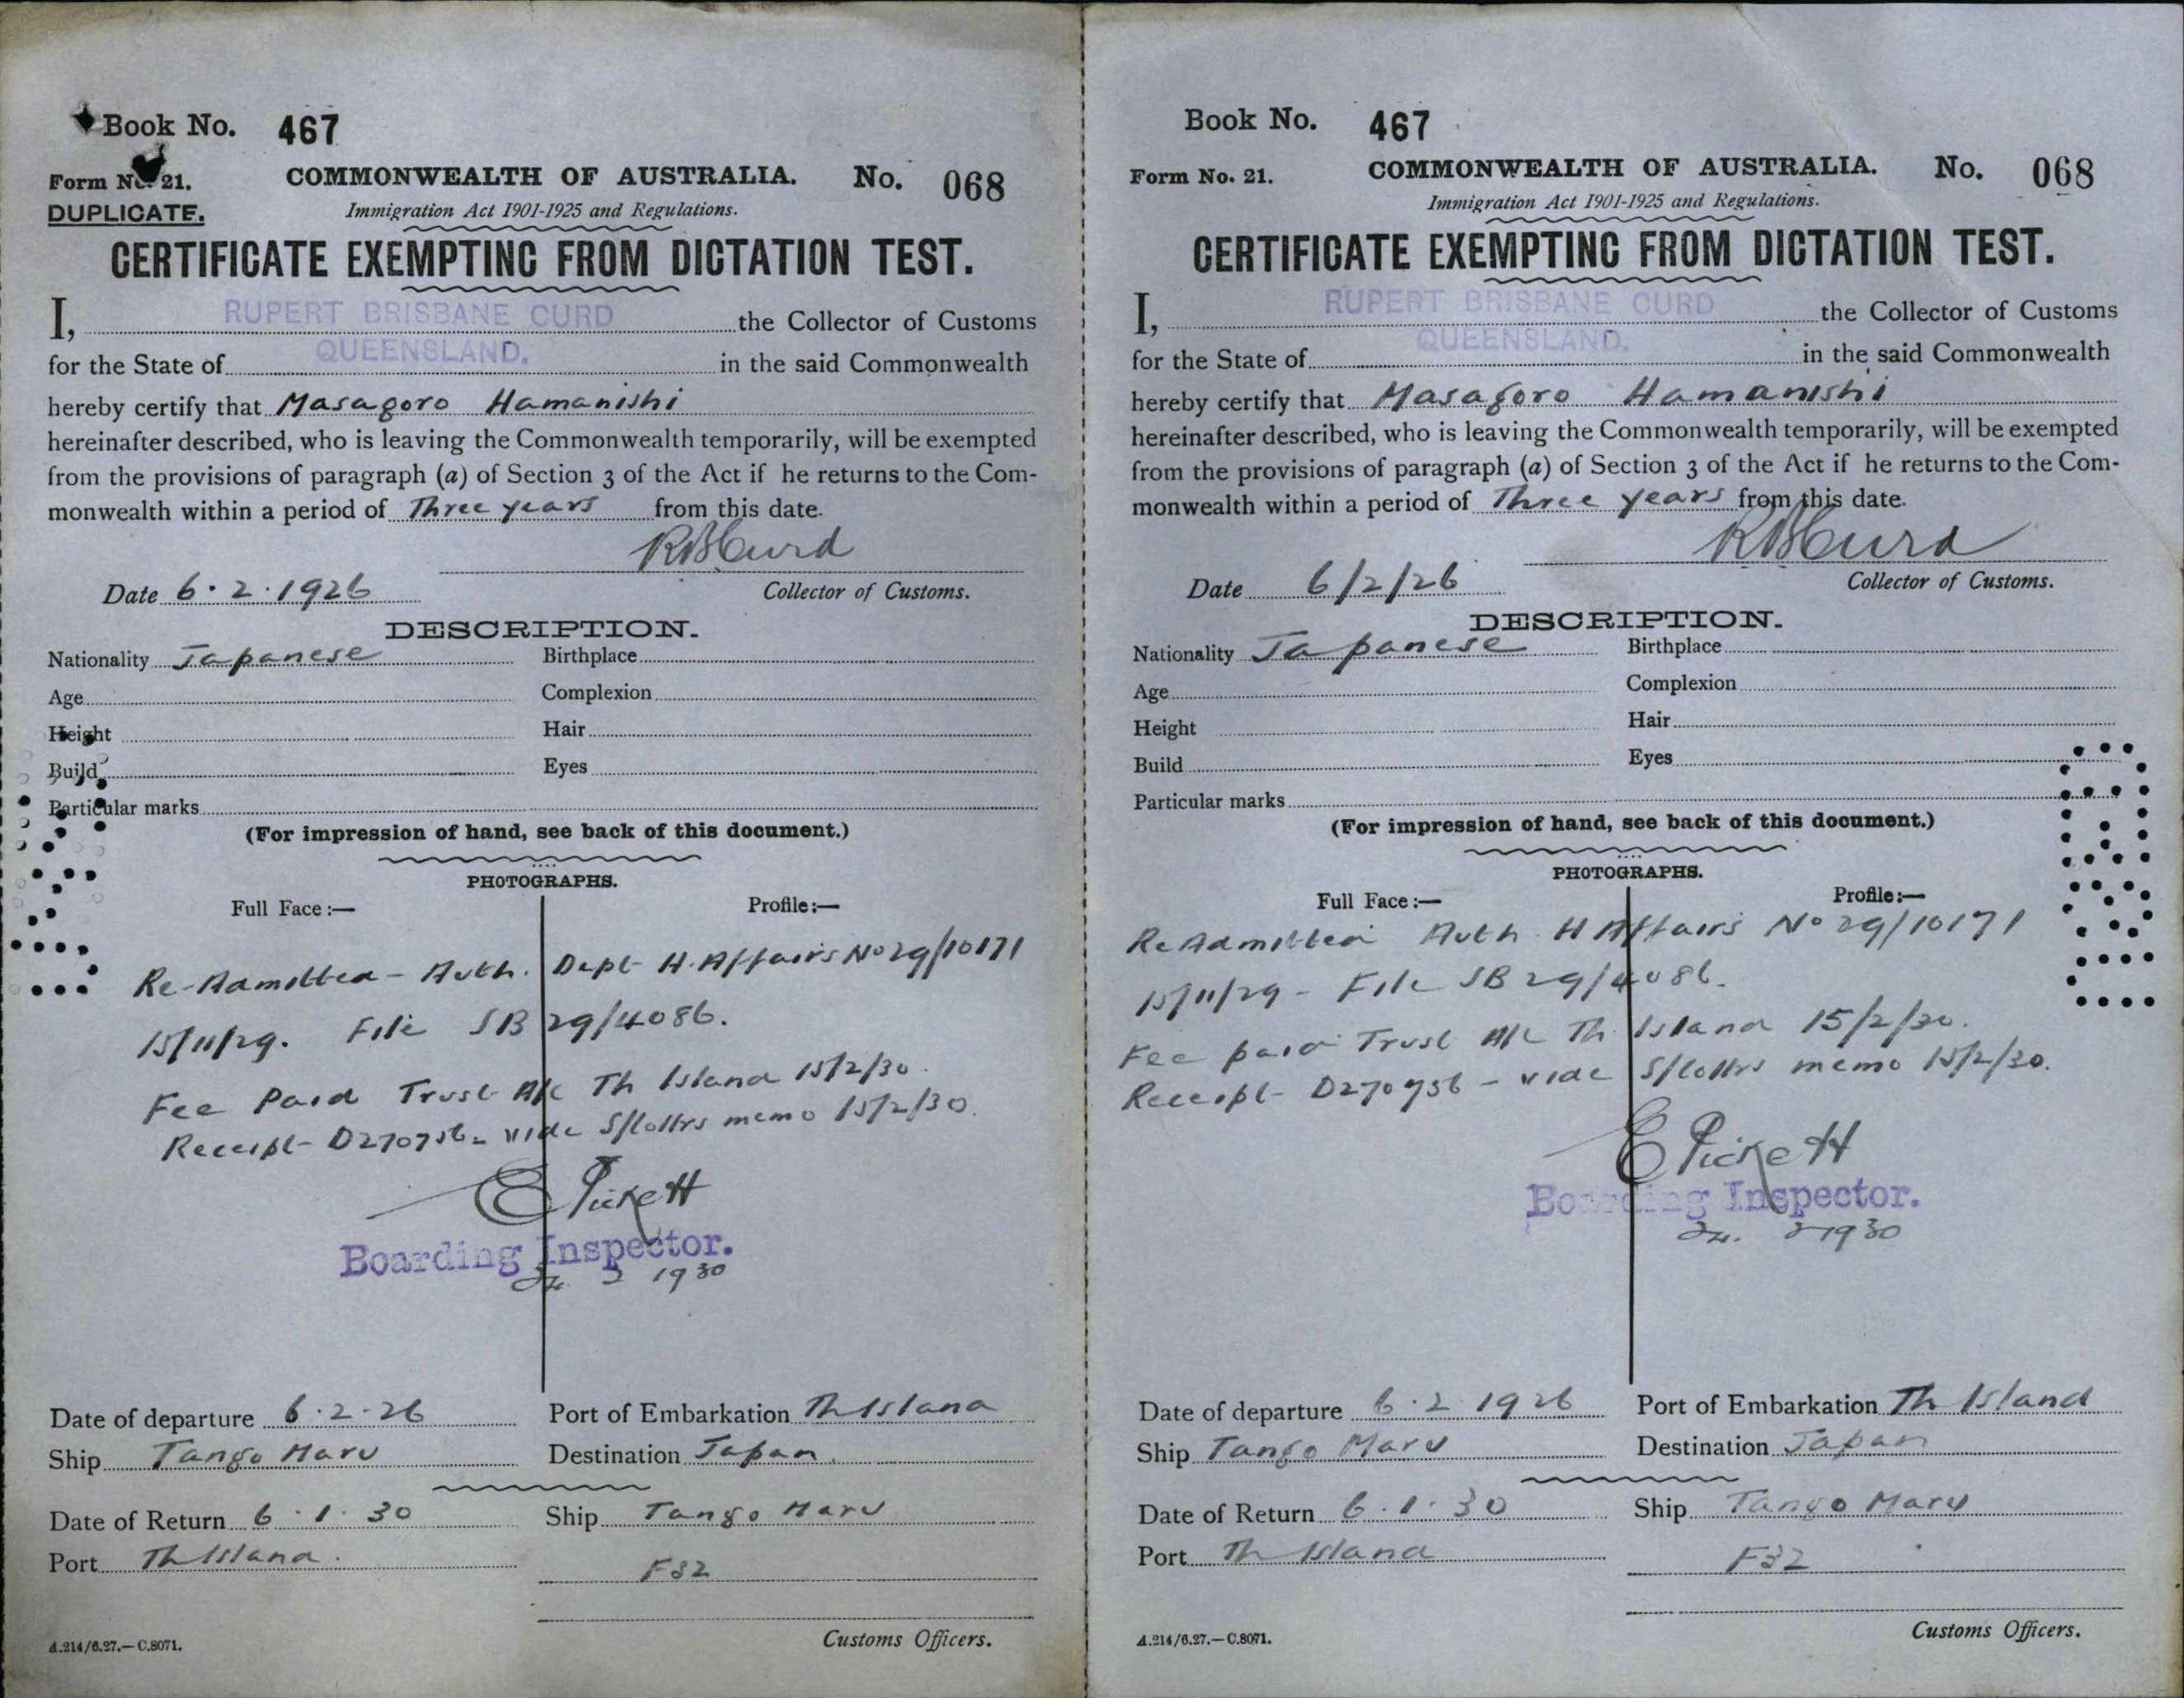 Book No. 467
Form No. 21.
COMMONWEALTH OF AUSTRALIA. No. 068
DUPLICATE.
Immigration Act 1901-1925 and Regulations.
CERTIFICATE EXEMPTING FROM DICTATION TEST.
I, RUPERT BRISBANE CURD the Collector of Customs
for the State of QUEENSLAND. in the said Commonwealth
hereby certify that Masagoro Hamanishi
hereinafter described, who is leaving the Commonwealth temporarily, will be exempted
from the provisions of paragraph (a) of Section 3 of the Act if he returns to the Com-
monwealth within a period of Three years from this date.
RBCurd
Date 6.2.1926 Collector of Customs.
DESCRIPTION.
Nationality Japanese Birthplace
Age Complexion
Height Hair
Build Eyes
Particular marks
(For impression of hand, see back of this document.)
PHOTOGRAPHS.
Full Face:— Profile:—
Re-Admitted - Auth. Dept H. Affairs No 29/10171
15/11/29. File SB 29/4086.
Fee Paid Trust A/c Th Island 15/2/30.
Receipt D270756 - vide S/Collrs memo 15/2/30.
E Pickett
Boarding Inspector.
1930
Date of departure 6.2.26 Port of Embarkation Th Island
Ship Tango Maru Destination Japan.
Date of Return 6.1.30 Ship Tango Maru
Port Th Island.
F32
A.214/6.27.—C.8071. Customs Officers.
Book No. 467
Form No. 21. COMMONWEALTH OF AUSTRALIA. No. 068
Immigration Act 1901-1925 and Regulations.
CERTIFICATE EXEMPTING FROM DICTATION TEST.
I, RUPERT BRISBANE CURD the Collector of Customs
for the State of QUEENSLAND. in the said Commonwealth
hereby certify that Masagoro Hamanishi
hereinafter described, who is leaving the Commonwealth temporarily, will be exempted
from the provisions of paragraph (a) of Section 3 of the Act if he returns to the Com-
monwealth within a period of Three years from this date.
RBCurd
Date 6/2/26 Collector of Customs.
DESCRIPTION.
Nationality Japanese Birthplace
Age Complexion
Height Hair
Build Eyes
Particular marks
(For impression of hand, see back of this document.)
PHOTOGRAPHS.
Full Face:— Profile:—
Re Admitted Auth H Affairs No 29/10171
15/11/29 - File SB 29/4086.
Fee paid Trust A/c Th Island 15/2/30.
Receipt D270756 - vide S/Collrs memo 15/2/30.
E Pickett
Boarding Inspector.
1930
Date of departure 6.2.1926 Port of Embarkation Th Island
Ship Tango Maru Destination Japan
Date of Return 6.1.30 Ship Tango Maru
Port Th Island
F32
A.214/6.27.—C.8071. Customs Officers.